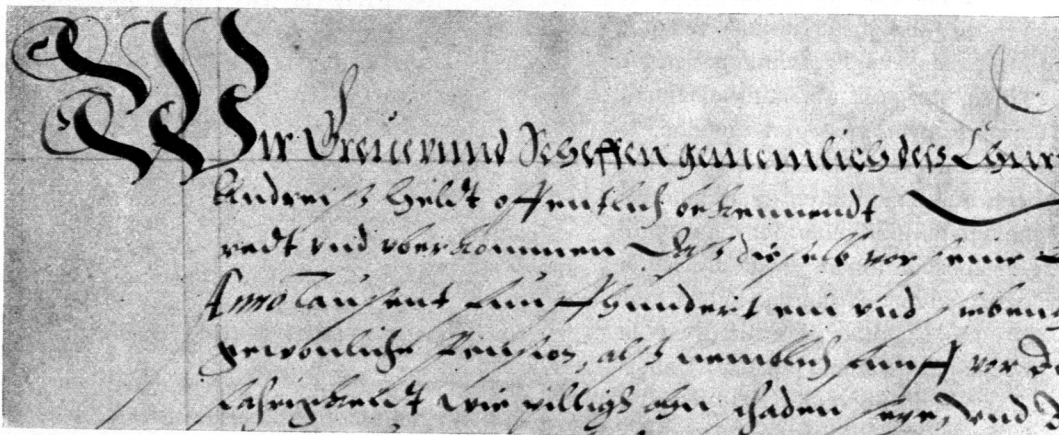 Wir Greue vnnd Scheffen gemeinlich dess Chur
Andreiß heldt offentlich bekennendt
redt vnd vberkommen Daß dieselb vor seine
Anno Tausent funffhundert ein vnd sieben
gewonliche Pension, alß nemblich funff vor
wie pilligh ohn schaden seye, vnd